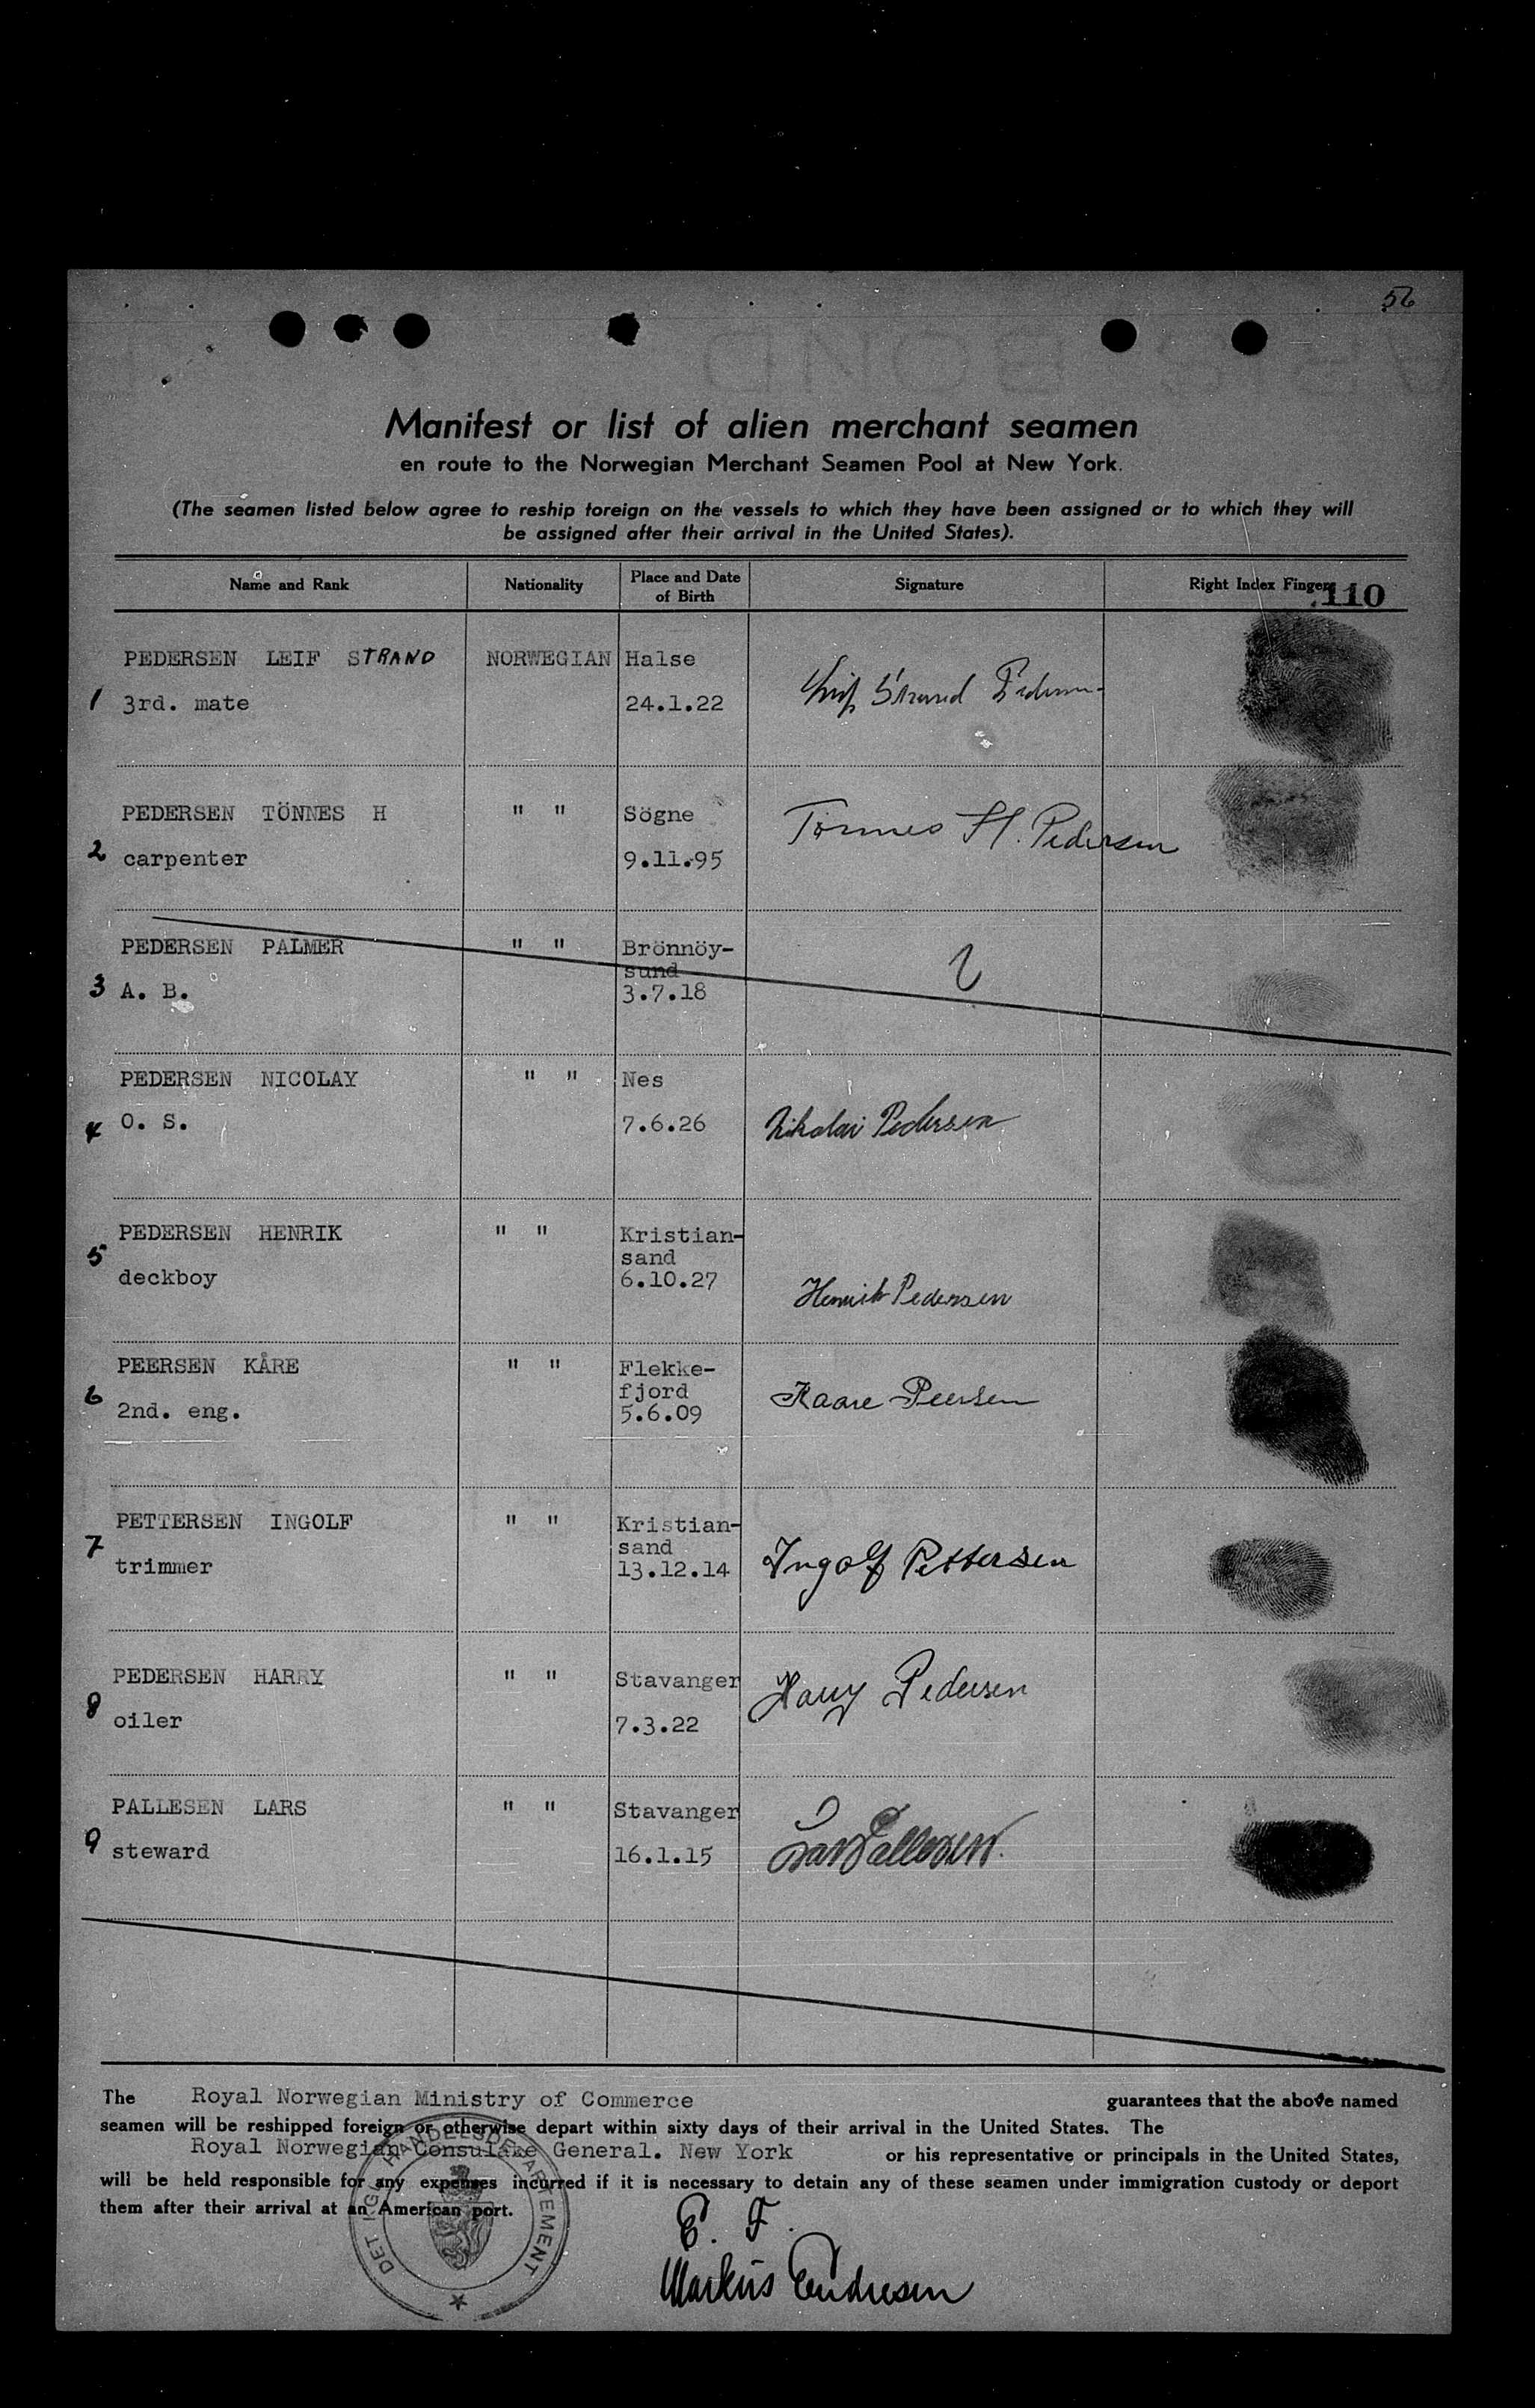 56
Manifest or list of alien merchant seamen
en route to the Norwegian Merchant Seamen Pool at New York.
(The seamen listed below agree to reship foreign on the vessels to which they have been assigned or to which they will
be assigned after their arrival in the United States).
Name and Rank Nationality Place and Date of Birth Signature Right Index Finger
110
PEDERSEN LEIF STRAND NORWEGIAN Halse
1 3rd. mate 24.1.22 Leif Strand Pedersen
PEDERSEN TÖNNES H " " Sögne Tönnes H. Pedersen
2 carpenter 9.11.95
PEDERSEN PALMER " " Brönnöy-
sund
3 A. B. 3.7.18
PEDERSEN NICOLAY " " Nes
4 O. S. 7.6.26 Nikolai Pedersen
PEDERSEN HENRIK " " Kristian-
sand
5 deckboy 6.10.27 Henrik Pedersen
PEERSEN KÅRE " " Flekke-
fjord Kaare Peersen
6 2nd. eng. 5.6.09
PETTERSEN INGOLF " " Kristian-
sand
7 trimmer 13.12.14 Ingolf Pettersen
PEDERSEN HARRY " " Stavanger Harry Pedersen
8 oiler 7.3.22
PALLESEN LARS " " Stavanger
9 steward 16.1.15 Lars Pallesen.
The Royal Norwegian Ministry of Commerce guarantees that the above named
seamen will be reshipped foreign or otherwise depart within sixty days of their arrival in the United States. The
Royal Norwegian Consulate General. New York or his representative or principals in the United States,
will be held responsible for any expenses incurred if it is necessary to detain any of these seamen under immigration custody or deport
them after their arrival at an American port.
DET KGL. HANDELSDEPARTEMENT
E. F.
Markus Endresen